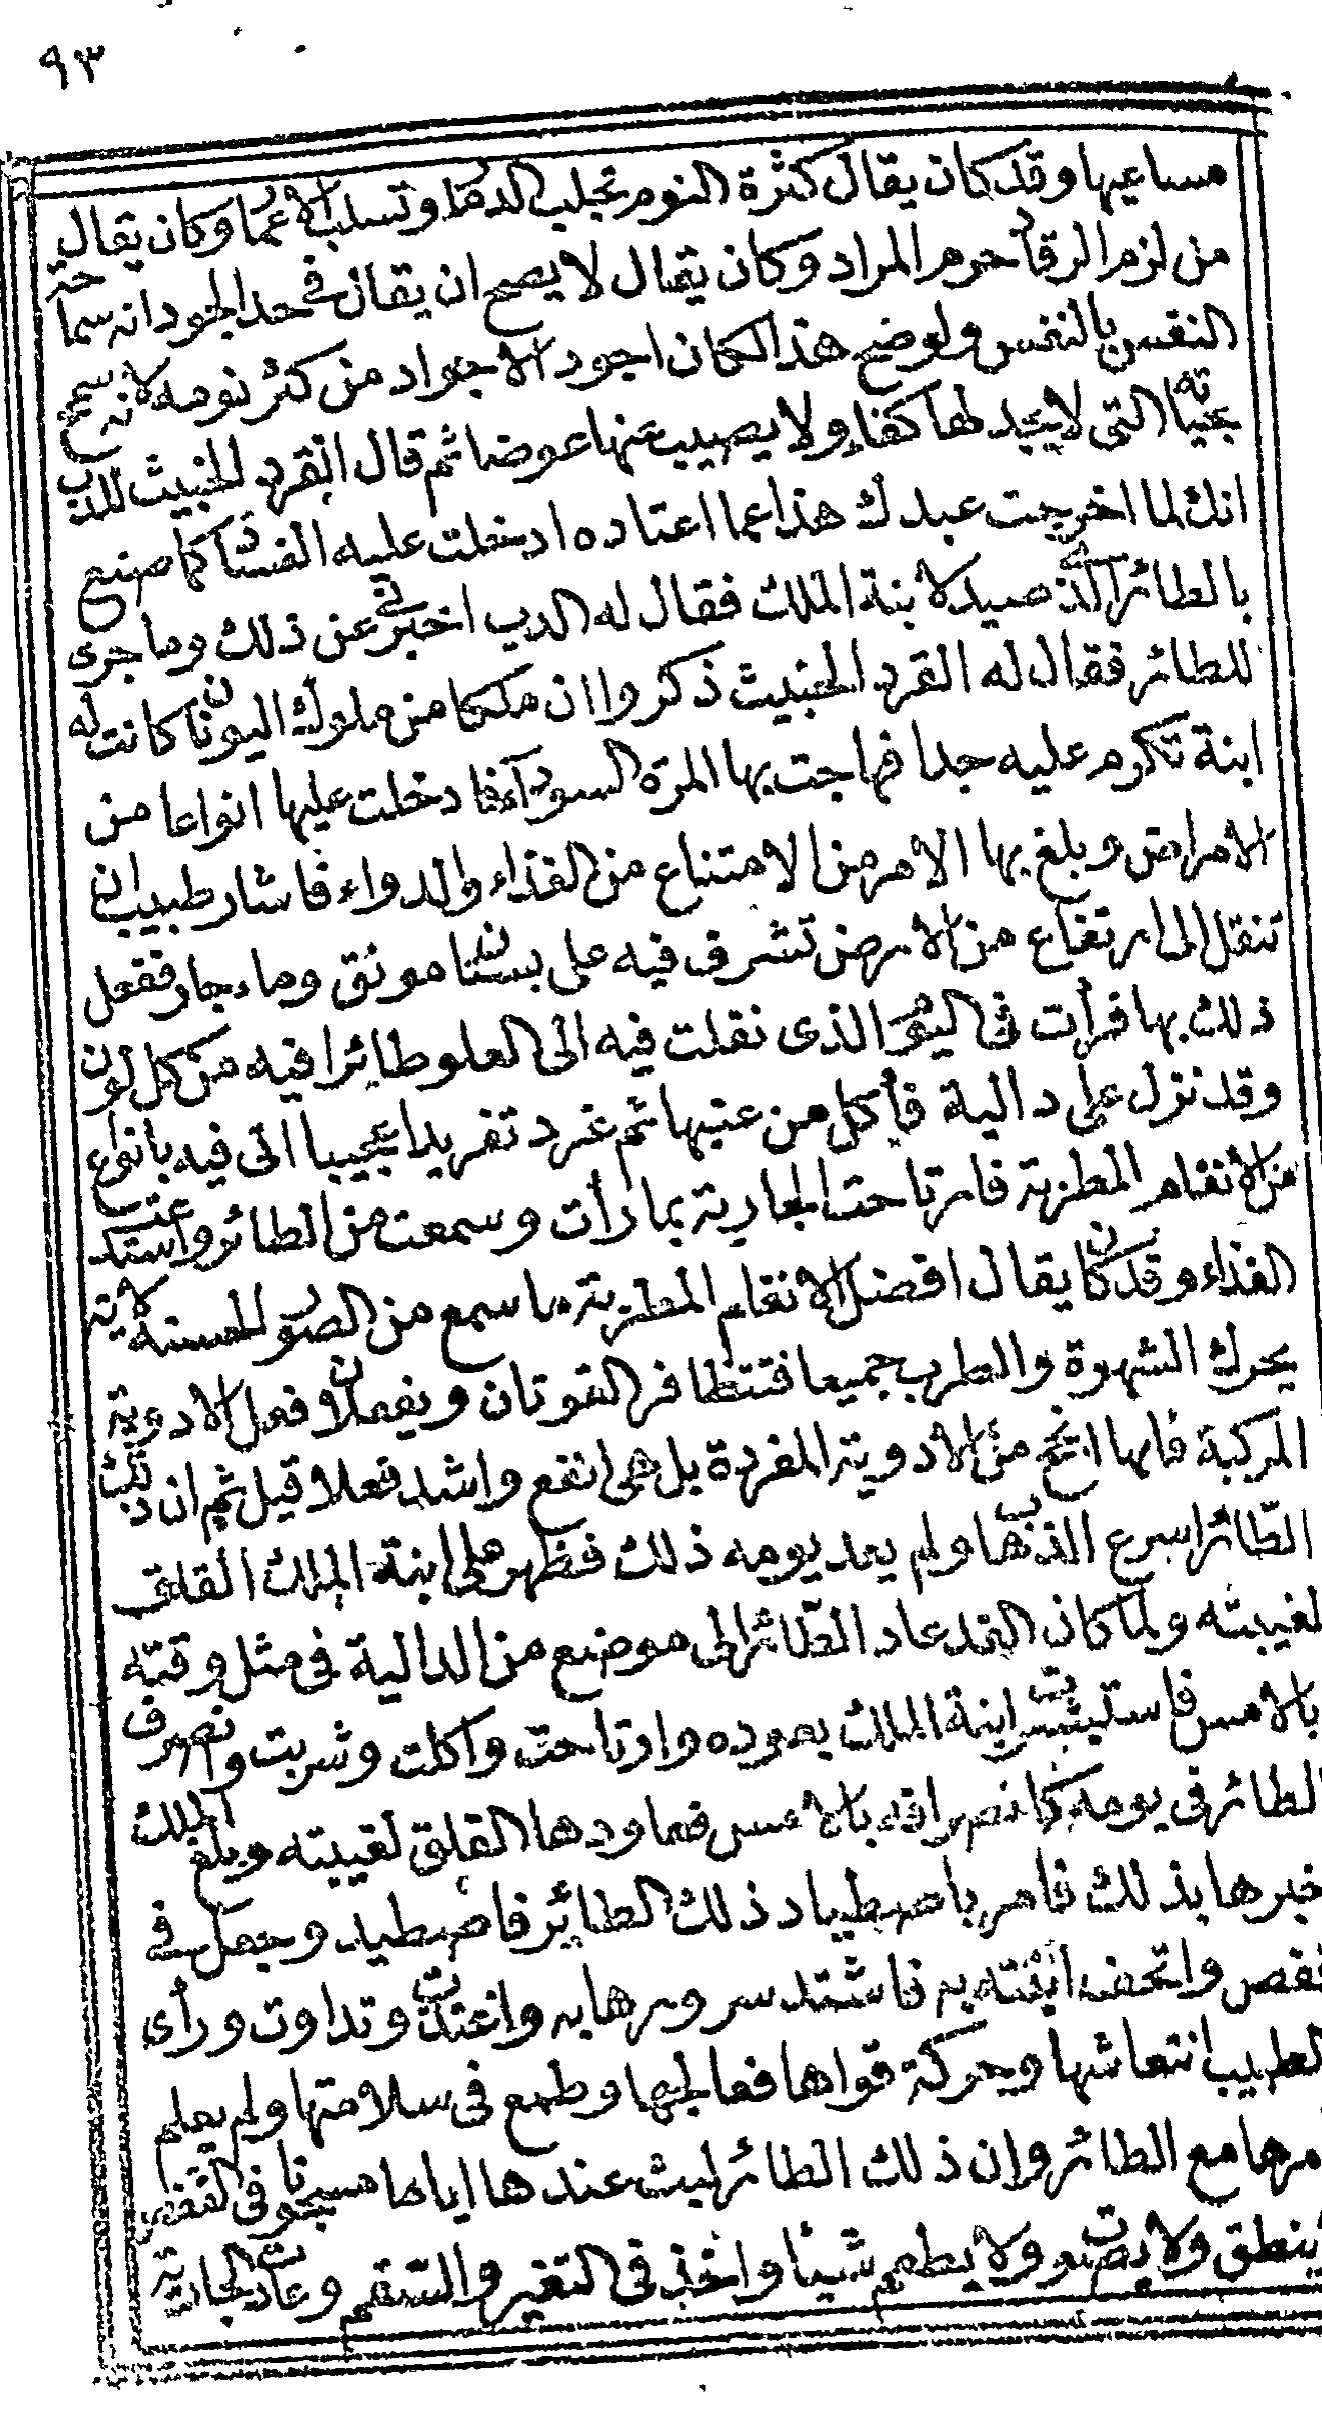 ٩٣
مساعيها وقد كان يقال كثرة النوم تجلب الدمار وتسلب الاعمار وكان يقال
من لزم الرقاد حرم المراد وكان يقال لا يصح ان يقال في حد الجود انه سماحة
النفس بالنفس ولو ضح هذا لكان اجود الاجواد من كثر نومه لانه سمح
بحياته التي لا يجد لها كفاء ولا يصيب عنها عوضا ثم قال القرد الخبيث للدب
انك لما اخرجت عبدك هذا عما اعتاده ادخلت عليه الفساد كما صنع
بالطائر الذى صيد لابنة الملك فقال له الدب اخبرني عن ذلك وما جرى
للطائر فقال له القرد الخبيث ذكروا ان ملكا من ملوك اليونان كانت له
ابنة تكرم عليه جدا فهاجت بها المرة السودآء فادخلت عليها انواعا من
الامراض وبلغ بها الامر من الامتناع من الغذاء والدواء فاشار طبيب ان
تنقل الى ارتفاع من الارض تشرف فيه على بستان مونق وماء جار ففعل
ذلك بها فرأت في اليوم الذى نقلت فيه الى العلو طائرا فيه من كل لون
وقد نزل على دالية فأكل من عنبها ثم غرد تغريدا عجيبا اتى فيه بانواع
من الانغام المطربة فارتاحت الجارية بما رأت وسمعت من الطائر واستدعت
الغذاء وقد كان يقال افضل الانغام المطربة ما سمع من الصور الحسنة لانه
يحرك الشهوة والطرب جميعا فتتظافر القوتان ويفعلان فعل الادوية
المركبة فانها انجح من الادوية المفردة بل هى انفع واشد فعلا قيل ثم ان ذلك
الطّائر اسرع الذهاب ولم يعد يومه ذلك فظهر على ابنة الملك القلق
لغيبته ولما كان الغد عاد الطّائر الى موضع من الدالية في مثل وقته
بالامس فاستبشرت ابنة الملك بعوده وارتاحت واكلت وشربت وانصرف
الطائر في يومه كانصرافه بالامس فعاودها القلق لغيبته وبلغ الملك
خبرها بذلك فامر باصطياد ذلك الطائر فاصطيد وجعل في
قفص واتحف ابنته به فاشتد سرورها به واغتذت وتداوت ورأى
الطبيب انتعاشها وحركة قواها فعالجها وطمع في سلامتها ولم يعلم
امرها مع الطائر وان ذلك الطائر لبث عندها اياما مسجونا في القفص
ينطق ولا يصوت ولا يطعم شيئا واخذ في التغير والسقم وعادت الجارية